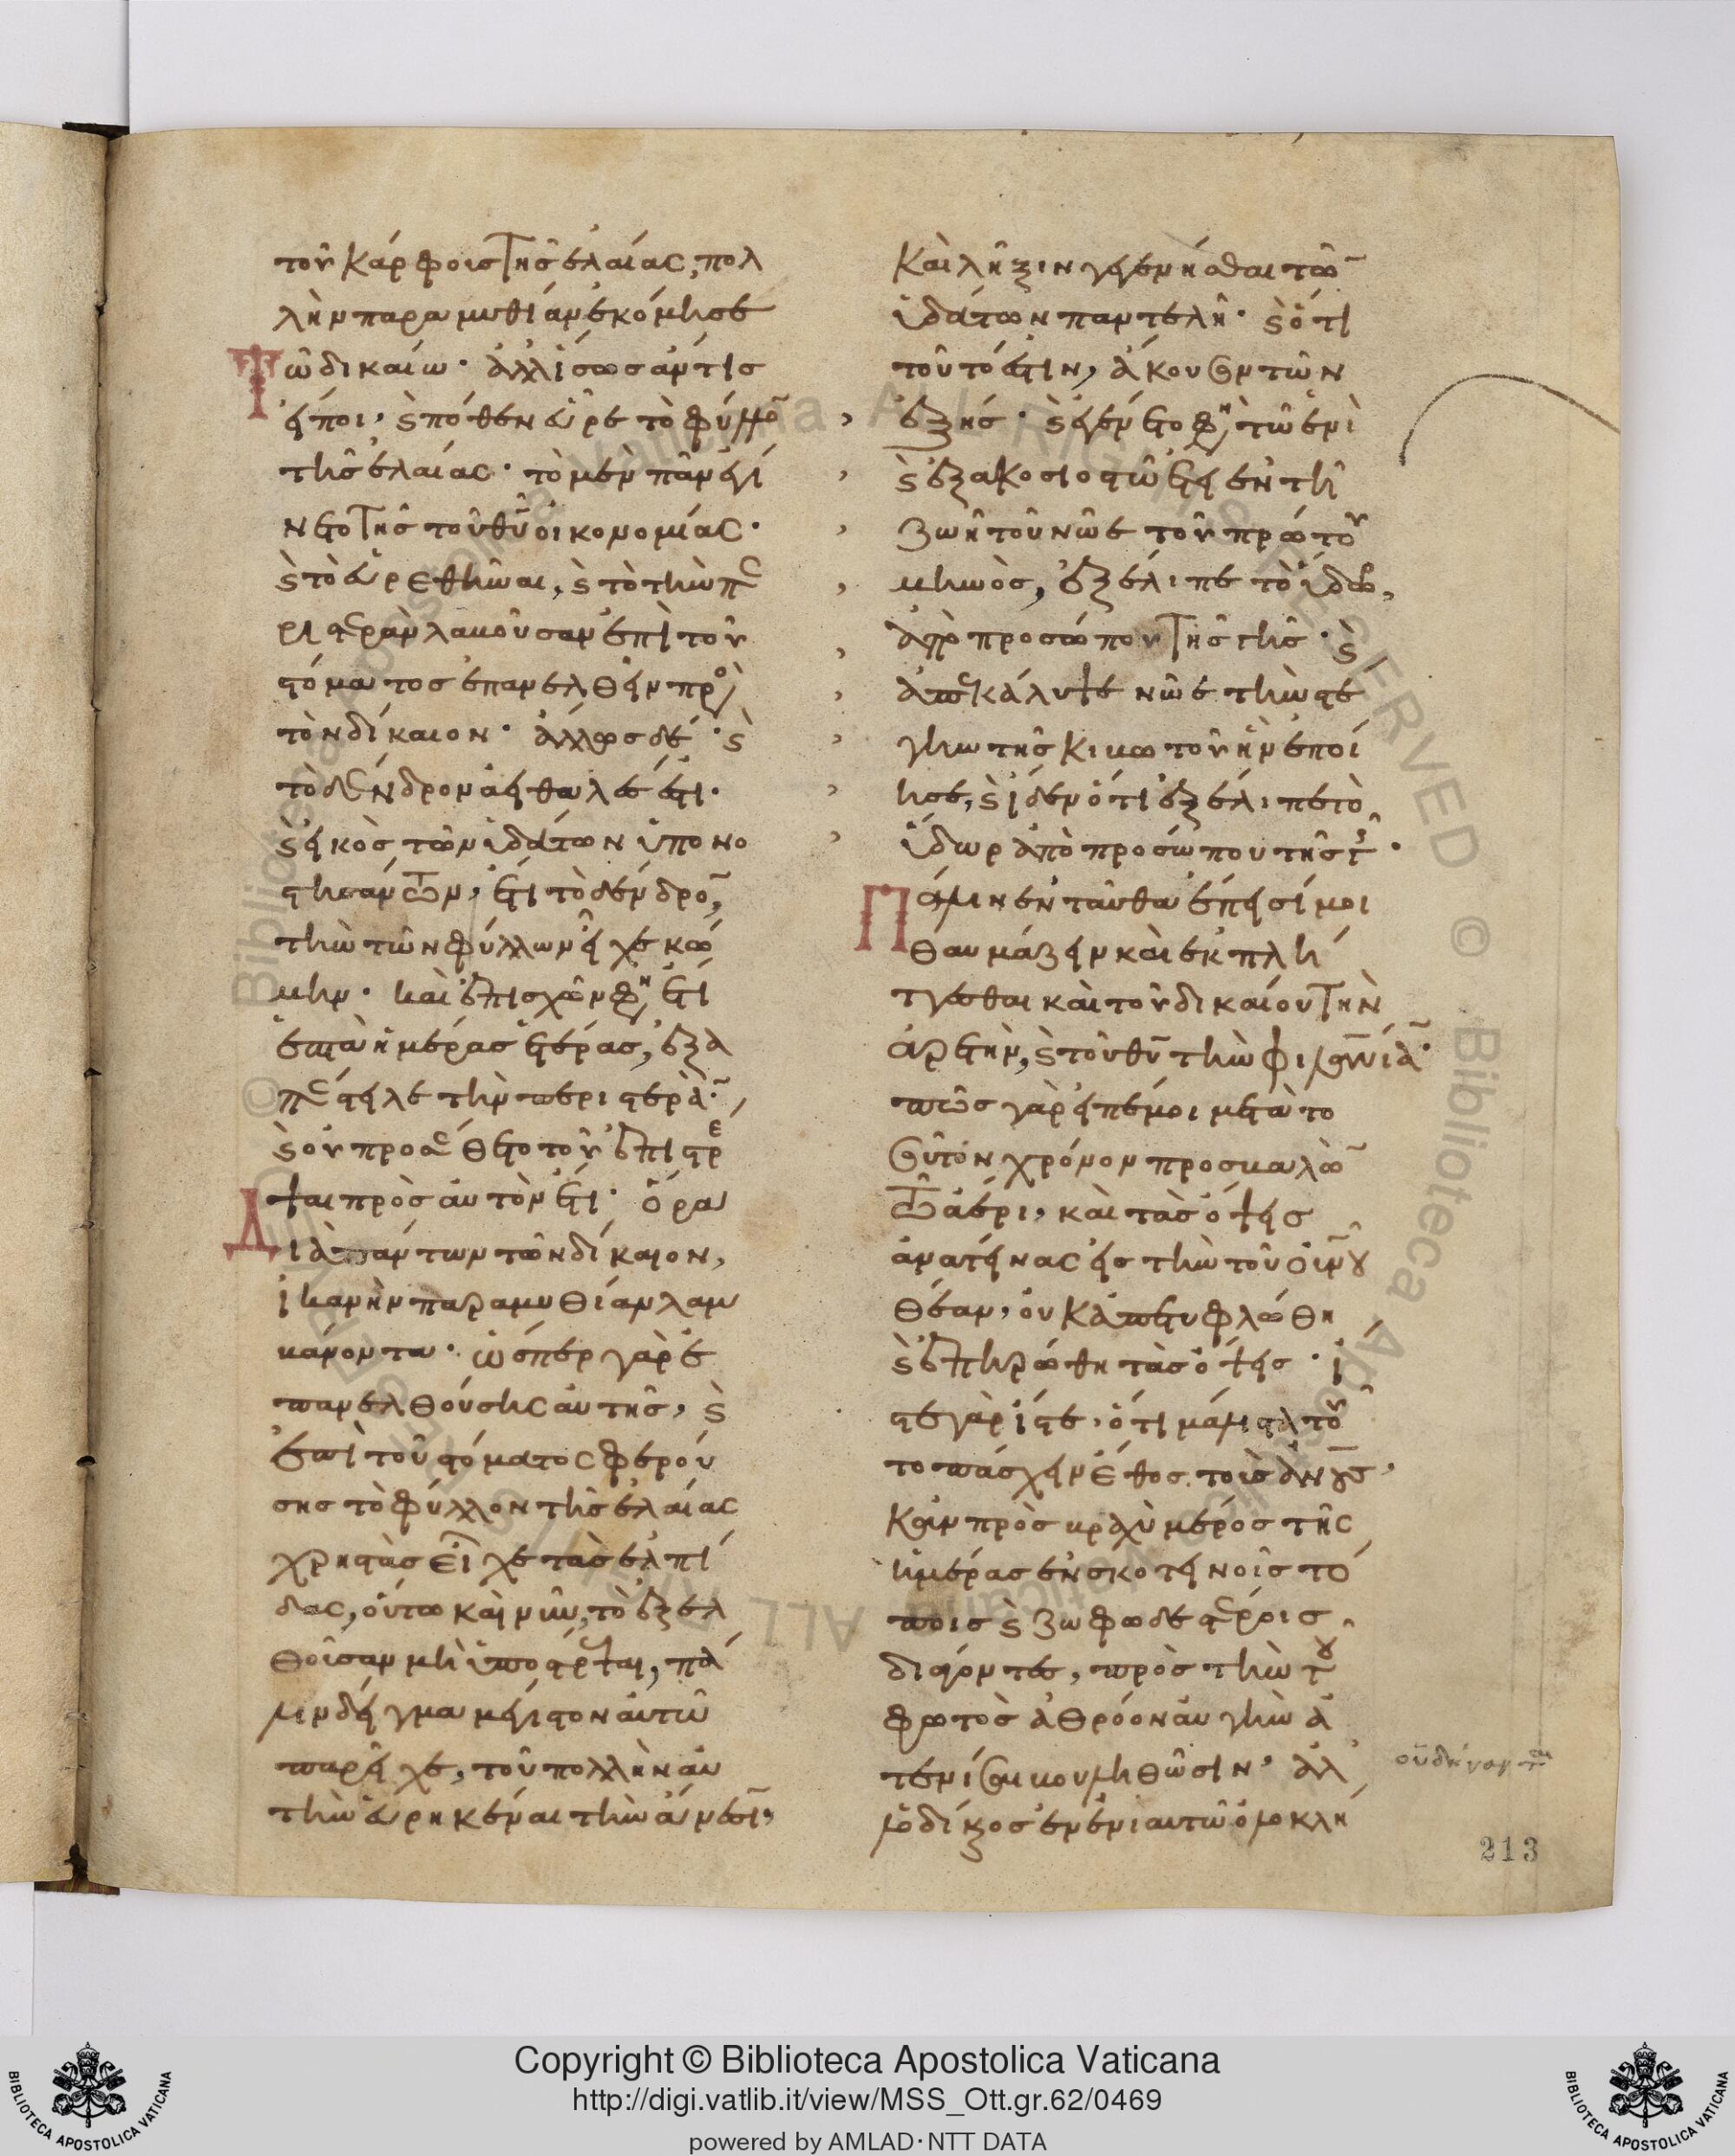 τοῦ κάρφους τῆς ἐλαίας, πολ
λὴν παραμυθίαν ἐκόμισε
τῶ δικαίω· ἀλλ' ἴσως ἄν τις
εἴποι, καὶ πόθεν εὗρε τὸ φύλλον
τῆς ἐλαίας· τὸ μὲν πᾶν ἐγί
νετο τῆς τοῦ θῦ οἰκονομίας·
καὶ τὸ εὑρεθῆναι, καὶ τὸ τὴν πε
ριστερὰν λαβοῦσαν ἐπὶ τοῦ
στόματος ἐπανελθεῖν πρὸς
τὸν δίκαιον· ἄλλως δέ· καὶ
τὸ δένδρον ἀειθαλές ἐστι·
καὶ εἰκὸς τῶν ὑδάτων ὑπονο
στησάντων, ἔτι τὸ δένδρον,
τὴν τῶν φύλλων εἶχε κό
μην· καὶ ἐπισχὼν φη ἔτι
ἑπτὰ ἡμέρας ἑτέρας, ἐξα
πέστειλε τὴν περιστεράν·
καὶ οὐ προσέθετο τοῦ ἐπιστρέ
ψαι πρὸς αὐτὸν ἔτι· ὅρα
διὰ πάντων τὸν δίκαιον,
ἱκανὴν παραμυθίαν λαμ
βάνοντα· ὥσπερ γὰρ ἐ
πανελθούσης αὐτῆς, καὶ
ἐπὶ τοῦ στόματος φερού
σης τὸ φύλλον τῆς ἐλαίας
χρηστὰς εἶχε τὰς ἐλπί
δας, οὕτω καὶ νῦν, τὸ ἐξελ
θοῦσαν μὴ ὑποστρέψαι, πά
λιν δεῖγμα μέγιστον αὐτῶ
παρεῖχε, τοῦ πολλὴν αὐ
τὴν εὑρηκέναι τὴν ἄνεσιν,
καὶ λῆξιν γεγενῆσθαι τῶν
ὑδάτων παντελῆ· καὶ ὅτι
τοῦτό ἐστιν, ἄκουσον τῶν
ἑξῆς· καὶ ἐγένετο φη ἐν τῶ ἑνὶ
καὶ ἑξακοσιοστῶ ἔτει ἐν τῆ
ζωῆ τοῦ νῶε τοῦ πρώτου
μηνὸς, ἐξέλιπε τὸ ὕδωρ,
ἀπὸ προσώπου τῆς γῆς· καὶ
ἀπεκάλυψε νῶε τὴν στέ
γην τῆς κιβωτοῦ ἣν ἐποί
ησε, καὶ ἴδεν ὅτι ἐξέλιπε τὸ
ὕδωρ ἀπὸ προσώπου τῆς γῆς·
πάλιν ἐνταῦθα ἔπεισί μοι
θαυμάζειν καὶ ἐκπλή
τεσθαι καὶ τοῦ δικαίου τὴν
ἀρετὴν, καὶ τοῦ θῦ τὴν φιλανίαν·
πῶς γὰρ εἰπέ μοι μετὰ το
σοῦτον χρόνον προσβαλὼν
τῶ ἀέρι, καὶ τὰς ὄψεις
ἀνατείνας εἰς τὴν τοῦ οὐνοῦ
θέαν, οὐκ ἀπετυφλώθη
καὶ ἐπηρώθη τὰς ὄψεις· ἴ
στε γὰρ ἴστε, ὅτι μάλιστα τοῦ
το πάσχειν ἔθος τοῖς ἀνους,
κἂν πρὸς βραχὺ μέρος τῆς
ἡμέρας ἐν σκοτεινοῖς τό
ποις καὶ ζωφωδεστέροις
διάγοντες, πρὸς τὴν τοῦ
φωτὸς ἀθρόον αὐγὴν ἀ
τενίσαι βουληθῶσιν, ἀλλ'
ὁ δίκαιος ἐν ἐνιαυτῶ ὁλοκλή
213
Copyright © Biblioteca Apostolica Vaticana
http://digi.vatlib.it/view/MSS_Ott.gr.62/0469
powered by AMLAD·NTT DATA
BIBLIOTECA APOSTOLICA VATICANA
BIBLIOTECA APOSTOLICA VATICANA